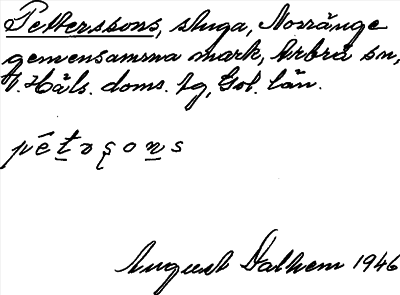 Petterssons, stuga, Norränge
gemensamma mark, Arbrå sn,
V. Häls. doms. tg, Gvl. län.
pétəşons
August Dalhem 1946